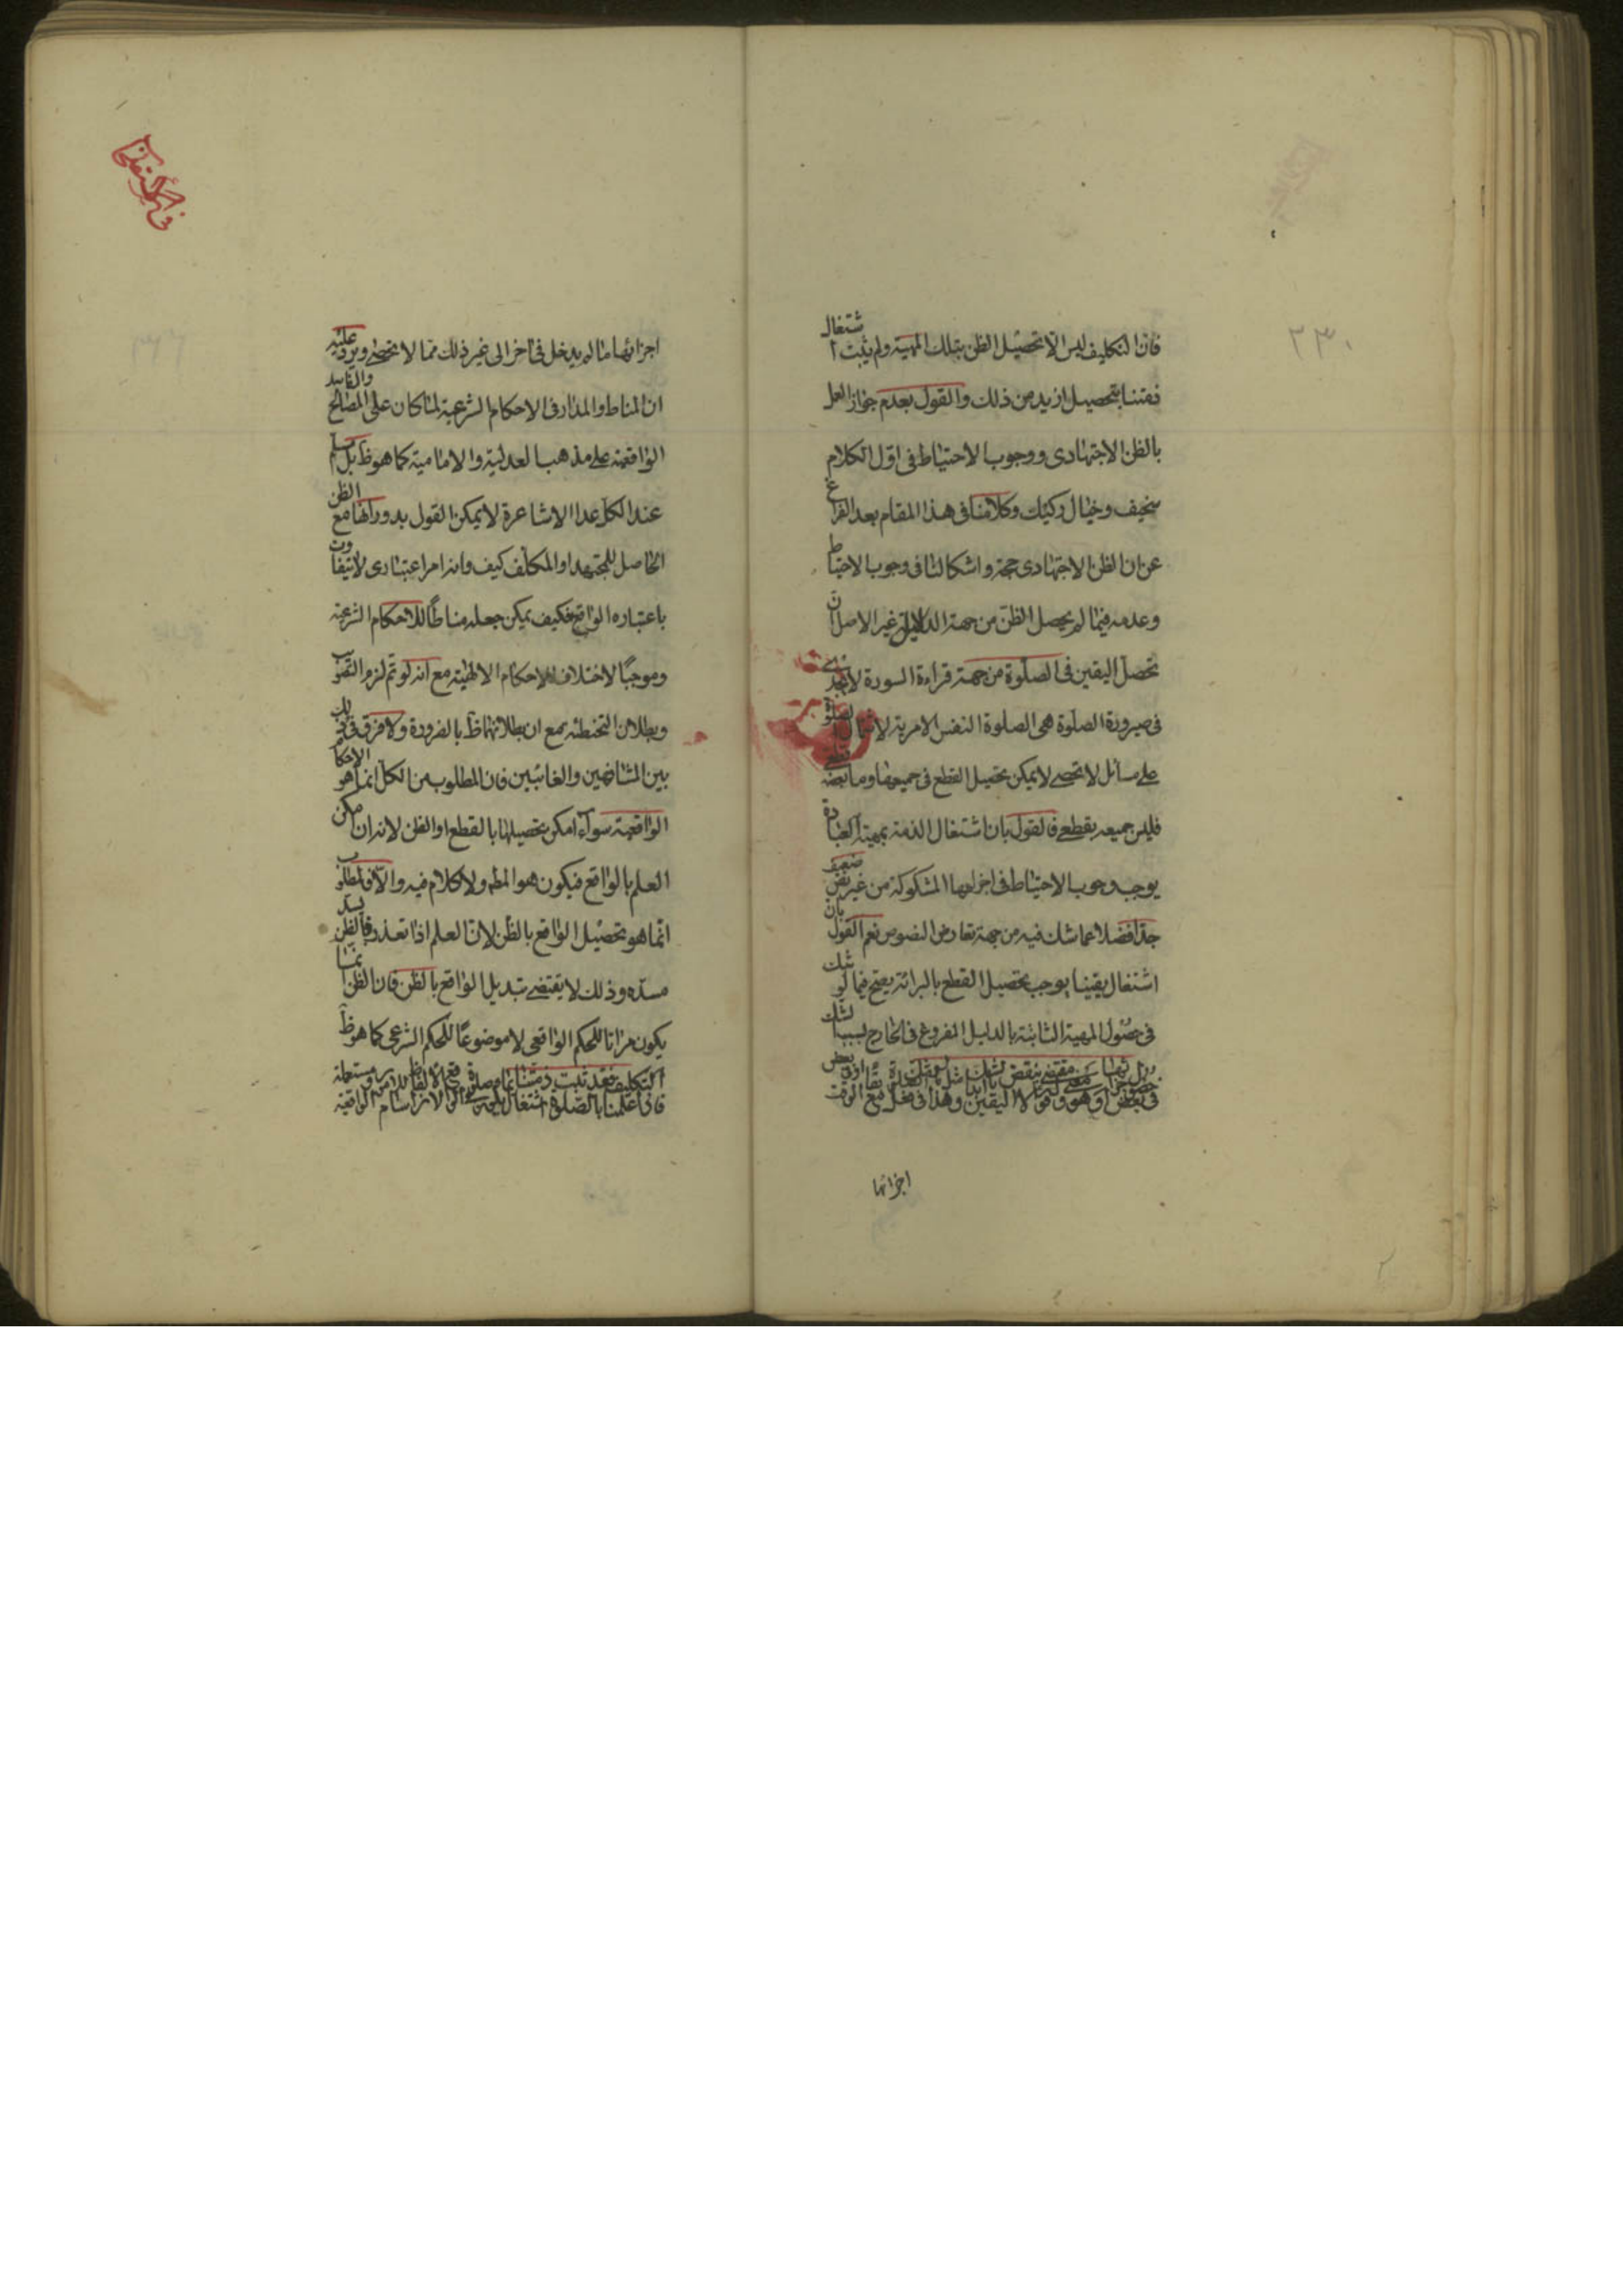 ٢٣٠
فان التكليف ليس الا تحصيل الظن بتلك المهية ولم يثبت اشتغال
ذمتنا بتحصيل ازيد من ذلك والقول بعدم جواز العمل
بالظن الاجتهادى ووجوب الاحتياط فى اول الكلام
سخيف وخيال ركيك وكلامنا فى هذا المقام بعد الفراغ
عن ان الظن الاجتهادى حجة واشكالنا فى وجوب الاحتياط
وعدمه فيما لم يحصل الظن من جهة الدلايل غير الاصل ان
تحصل اليقين فى الصلوة من جهة قراءة السورة لا يجدى
فى صيرورة الصلوة هى الصلوة النفس الامرية لاشتمال الصلوة
على مسائل لا تحصى لا يمكن تحصيل القطع فى جميعها وما بعضه قطعى
فليس جميعه بقطعى فالقول بان اشتغال الذمة بمهية العبادة
يوجب وجوب الاحتياط فى اجزائها المشكوكة من غير نص ضعيف
جدا فضلا عما شك فيه من جهة تعارض النصوص نعم القول بان
اشتغال يقينا يوجب تحصيل القطع بالبرائة يصح فيما لو شك
فى حصول المهية الثابتة بالدليل المفروغ فى الخارج بسبب الشك
فى بعض
اجزائها
اجزائها ما لم يدخل فى اخر الى غير ذلك مما لا تحصى ويرد عليه
ان المناط والمدار فى الاحكام الشرعية لما كان على المصالح والمفاسد
الواقعية على مذهب العدلية والامامية كما هو ظ بل
عند الكل عدا الاشاعرة لا يمكن القول بدورانها مع الظن
الحاصل للمجتهد او المكلف كيف وانه امر اعتبارى لا يتفاوت
باعتباره الواقع فكيف يمكن جعله مناطا للاحكام الشرعية
وموجبا لاختلاف الاحكام الالهية مع انه لو تم لزم التصويب
وبطلان التخطئة مع ان بطلانهما ظ بالضرورة ولا فرق فى ذلك
بين المشافهين والغائبين فان المطلوب من الكل انما هو الاحكام
الواقعية سواء امكن تحصيلها بالقطع او الظن لانه ان امكن
العلم بالواقع فيكون هو المط ولا كلام فيه والا فالمطلوب
انما هو تحصيل الواقع بالظن لان العلم اذا تعذر فالظن يسد
مسده وذلك لا يقتضى تبديل الواقع بالظن فان الظن انما
يكون مراتا للحكم الواقعى لا موضوعا للحكم الشرعى كما هو ظ